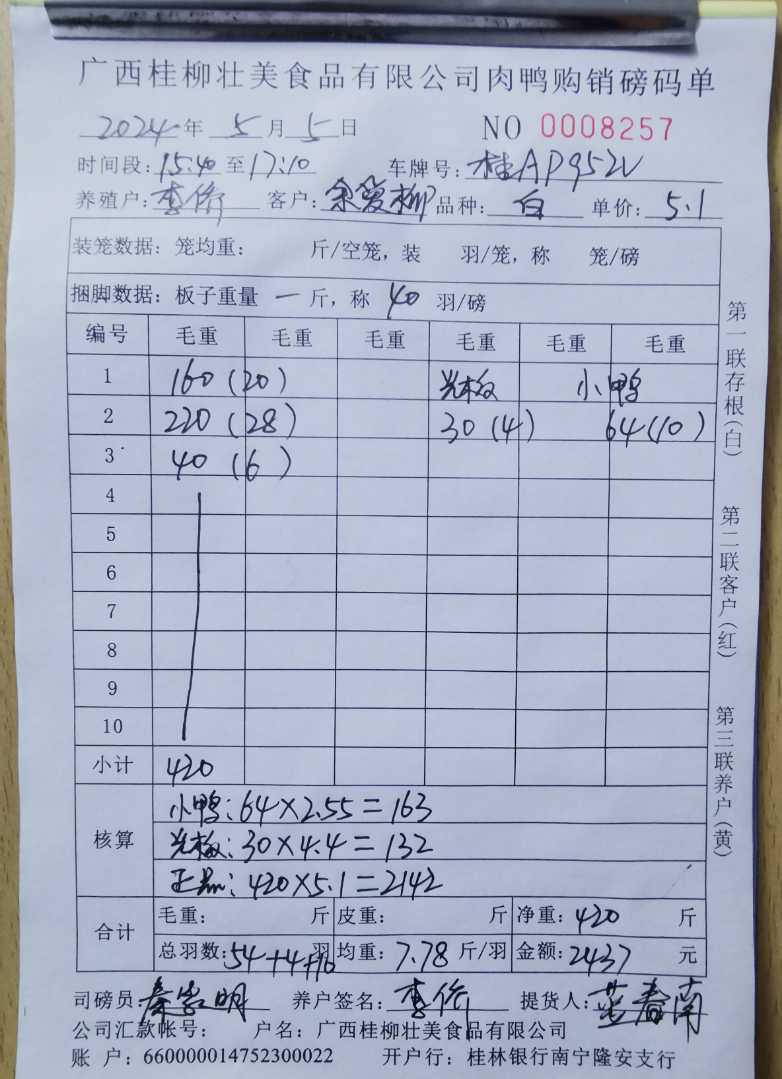 广西桂柳壮美食品有限公司肉鸭购销磅码单
2024年 5月 5日 NO 0008257
时间段:15:40至17:10 车牌号:桂AP952V
养殖户:李侨 客户:余爱柳 品种:白 单价:5.1
装笼数据:笼均重: 斤/空笼,装 羽/笼,称 笼/磅
捆脚数据:板子重量 一 斤,称 40 羽/磅
编号 毛重 毛重 毛重 毛重 毛重 毛重
1 160 (20) 光板 小鸭
2 220 (28) 30 (4) 64 (10)
3 40 (6)
4
5
6
7
8
9
10
小计 420
核算 小鸭:64×2.55=163
光板:30×4.4=132
正品:420×5.1=2142
合计 毛重: 斤 皮重: 斤 净重:420 斤
总羽数:54+4+10羽 均重:7.78斤/羽 金额:2437元
司磅员:秦崇明 养户签名:李侨 提货人:蓝春南
公司汇款帐号: 户名:广西桂柳壮美食品有限公司
账 户:660000014752300022 开户行:桂林银行南宁隆安支行
第一联存根(白)
第二联客户(红)
第三联养户(黄)